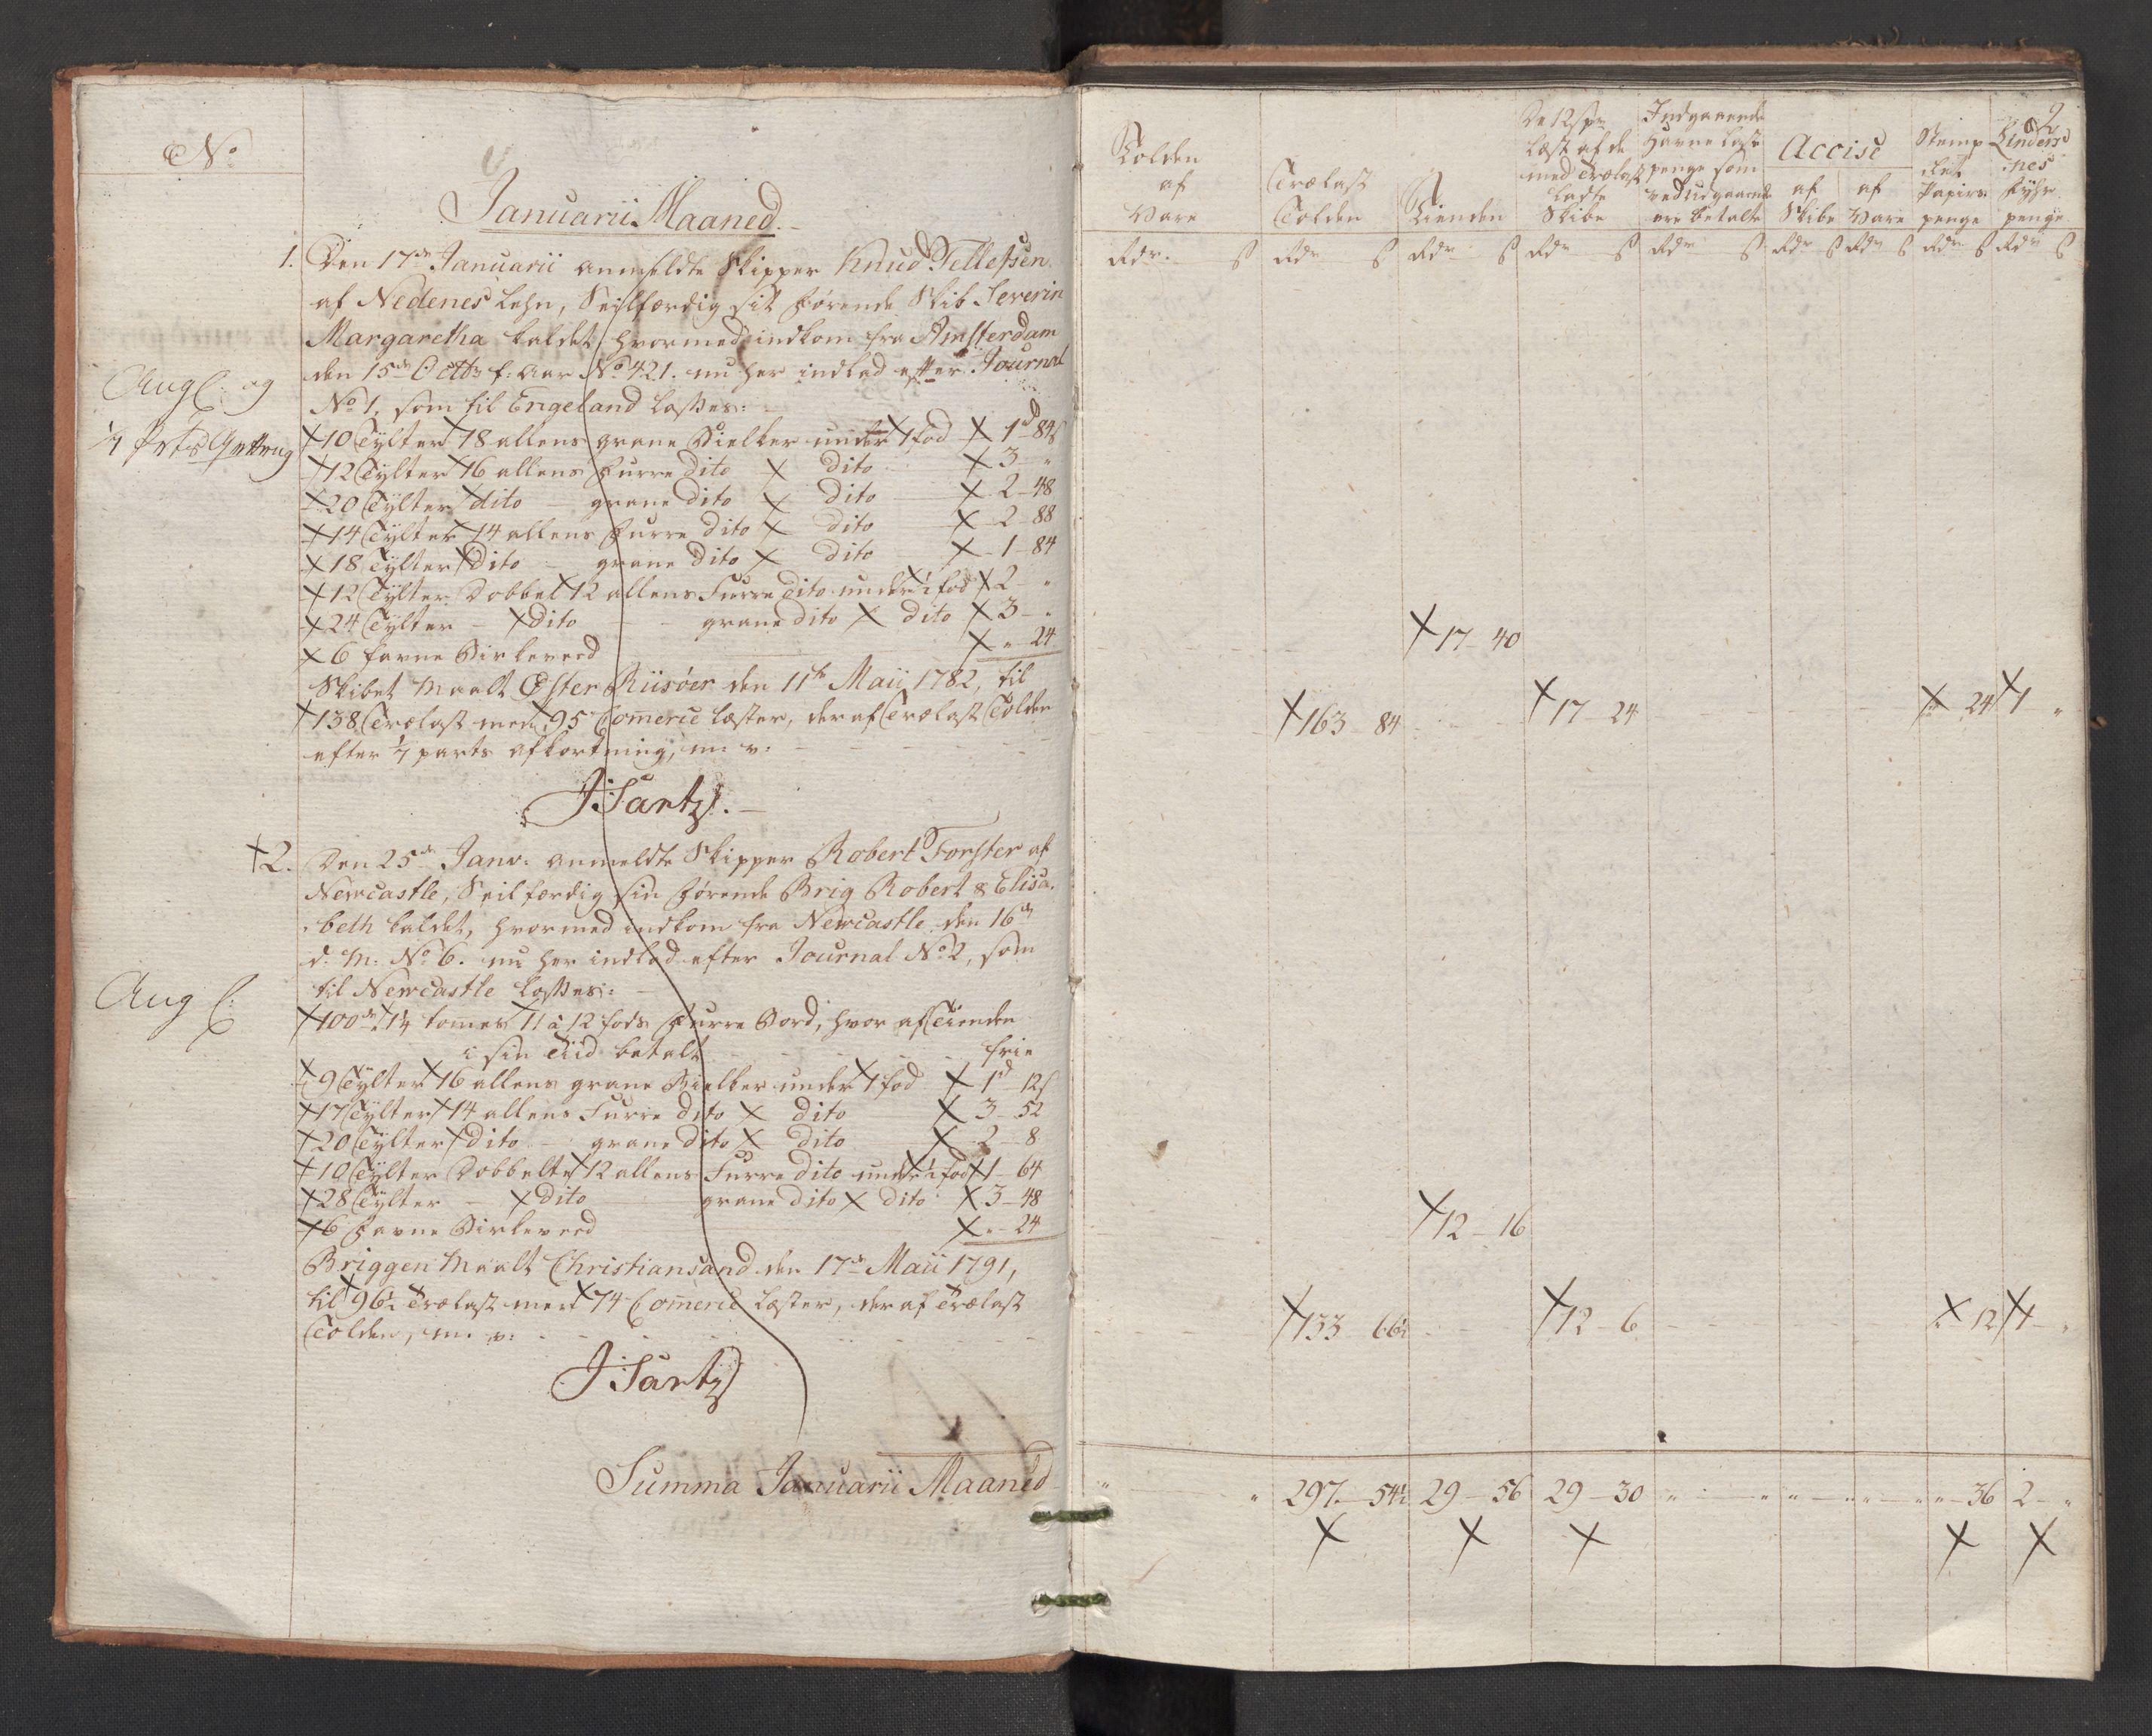 No
Januarii Maaned.
1. Den 17de Januarii anmeldte Skipper Knud Tellefsen
af Nedenes Lehn, Seilfærdig sit førende Skib Severin
Margaretha kaldet, hvormed indkom fra Amsterdam
den 15de Octbr f: Aar No 421. nu her indlad efter Journal
Aug C: og
No 1, som til Engeland losses:
1/7 Parts
10 Tylter 18 allens grane Bielker under 1 fod 1d 84s
12 Tylter 16 allens Furre dito dito 3 "
20 Tylter dito grane dito dito 2 48
14 Tylter 14 allens Furre dito dito 2 88
18 Tylter dito grane dito dito 1 84
12 Tylter Dobbel 12 allens Furre dito under 1 fod 2 "
24 Tylter dito grane dito dito 3 "
6 favne Birkeveed " 24
Skibet Maalt Øster Riisøer den 11te Maii 1782, til
138 Trælast men 95 Comerce læster, deraf Trælast Tolden
efter 1/7 parts afkortning, m: v:
J Sartz.
2. Den 25de Janv: anmeldte Skipper Robert Forster af
Newcastle, Seilfærdig sin førende Brig Robert & Elisa-
beth kaldet, hvormed indkom fra Newcastle den 16de
d: M: No 6. nu her indlad efter Journal No 2, som
Aug C:
til Newcastle losses:
100de 1 1/4 tommes 11 à 12 fods Furre Bord, hvor af Tienden
i sin Tiid betalt frie
9 Tylter 16 allens grane Bielker under 1 fod 1d 12s
17 Tylter 14 allens Furre dito dito 3 52
20 Tylter dito grane dito dito 2 8
10 Tylter Dobbelte 12 allens Furre dito under 1 fod 1 64
28 Tylter dito grane dito dito 3 48
6 Favne Birkeveed " 24
Briggen Maalt Christiansand den 17de Maii 1791,
til 96 1/2 Trælast men 74 Comerce læster, deraf Trælast
Tolden, m: v:
J Sartz
Summa Januarii Maaned
2
Tolden af Vare
Trælast Tolden
Tienden
De 12 s pr Læst af de med Trælast ladte Skibe
Indgaaende Havne Laste penge som ved Udgaaende ere betalte
Accise
af Skibe
af Vare
Stemplet Papirs penge
Lindersnes Fyhr penge
Rdr s Rdr s Rdr s Rdr s Rdr s Rdr s Rdr s Rdr s Rdr s
17 40
163 84 17 24 " 24 1 "
12 16
133 66 1/2 12 6 " 12 1 "
" " 297 54 1/2 29 56 29 30 " " " " " " " 36 2 "